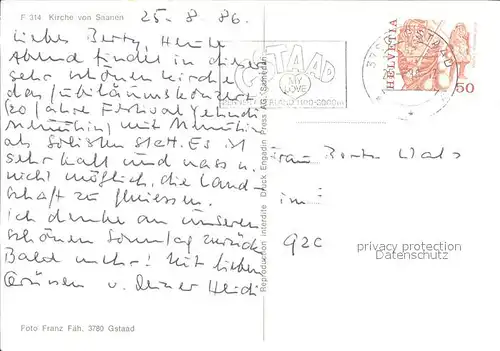 F 314 Kirche von Saanen
25-8-86.
Liebes Berty, Heute
Abend findet in dieser
sehr schönen Kirche
das Jubiläumskonzert
(20 Jahre Festival Yehudi
Menuhin) mit Menuhin
als Solisten statt. Es ist
sehr kalt und nass u.
nicht möglich, die Land-
schaft zu geniessen.
Ich denke an unseren
schönen Sonntag zurück
Bald mehr! Mit lieben
Grüssen v. Deiner Heidi
Foto Franz Fäh, 3780 Gstaad
Reproduction interdite Druck Engadin Press AG, Samedan
GSTAAD
MY LOVE
HELVETIA
50
Frau
privacy protection
Datenschutz